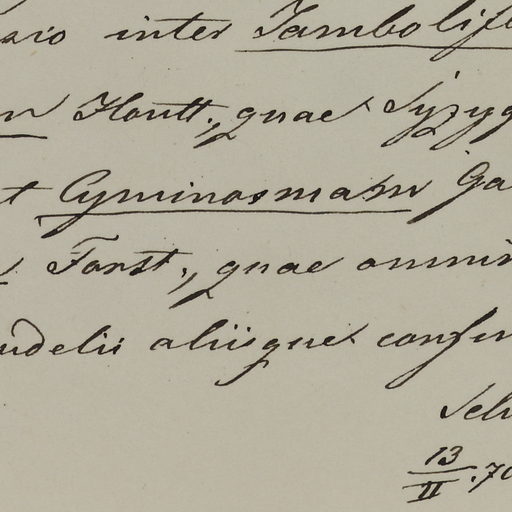 inter Jambolife
Houtt., quae Syzyg
Cyminosmam Ga
Forst., quae omnin
udelii aliisque confu
Sch
13/II.70